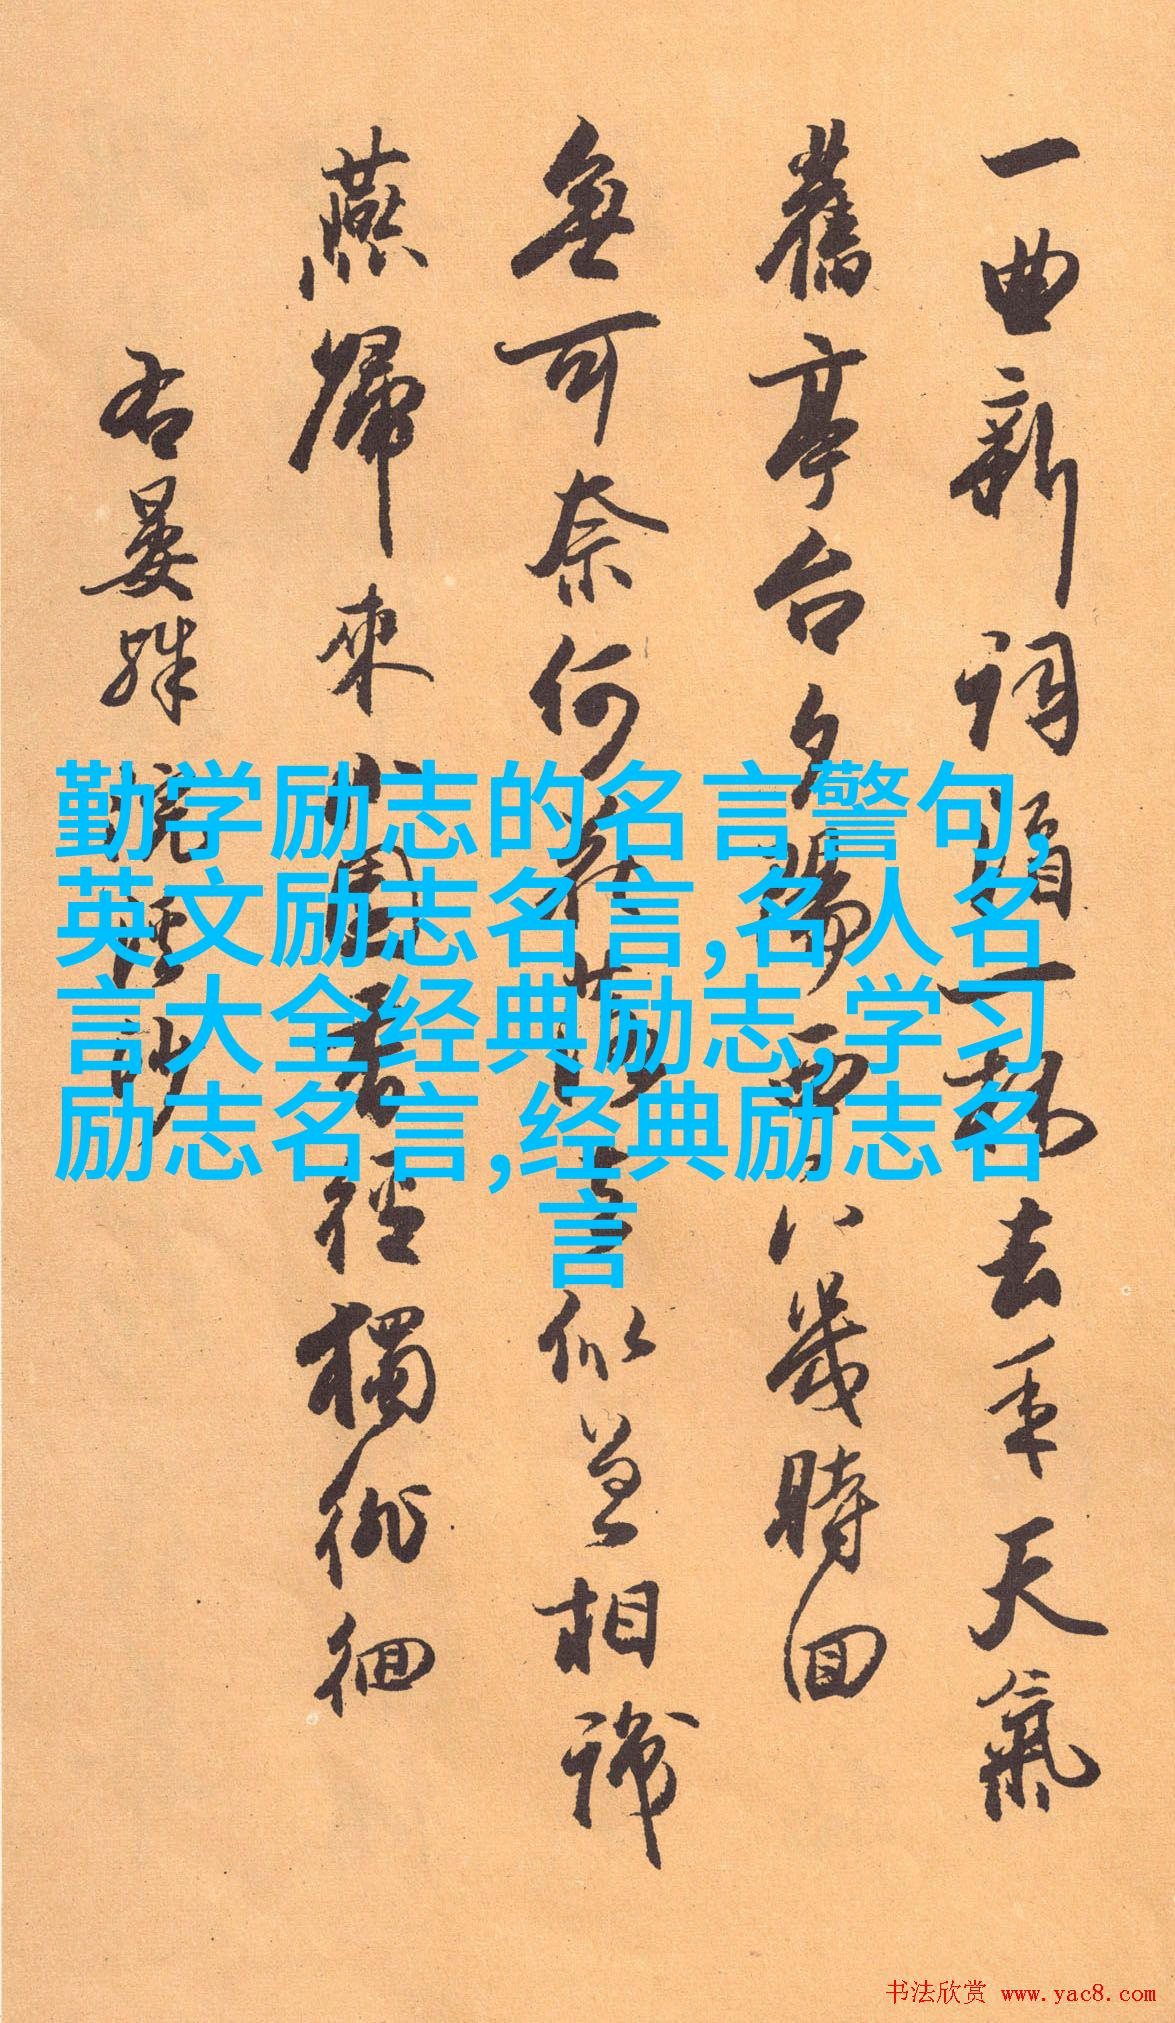 一曲新詞酒一杯去年天氣
舊亭台夕陽西下幾時回
無可奈何花落去似曾相識
燕歸來小園香徑獨徘徊
右晏殊浣溪沙
勤学励志的名言警句,
英文励志名言,名人名
言大全经典励志,学习
励志名言,经典励志名
言
书法欣赏 www.yac8.com